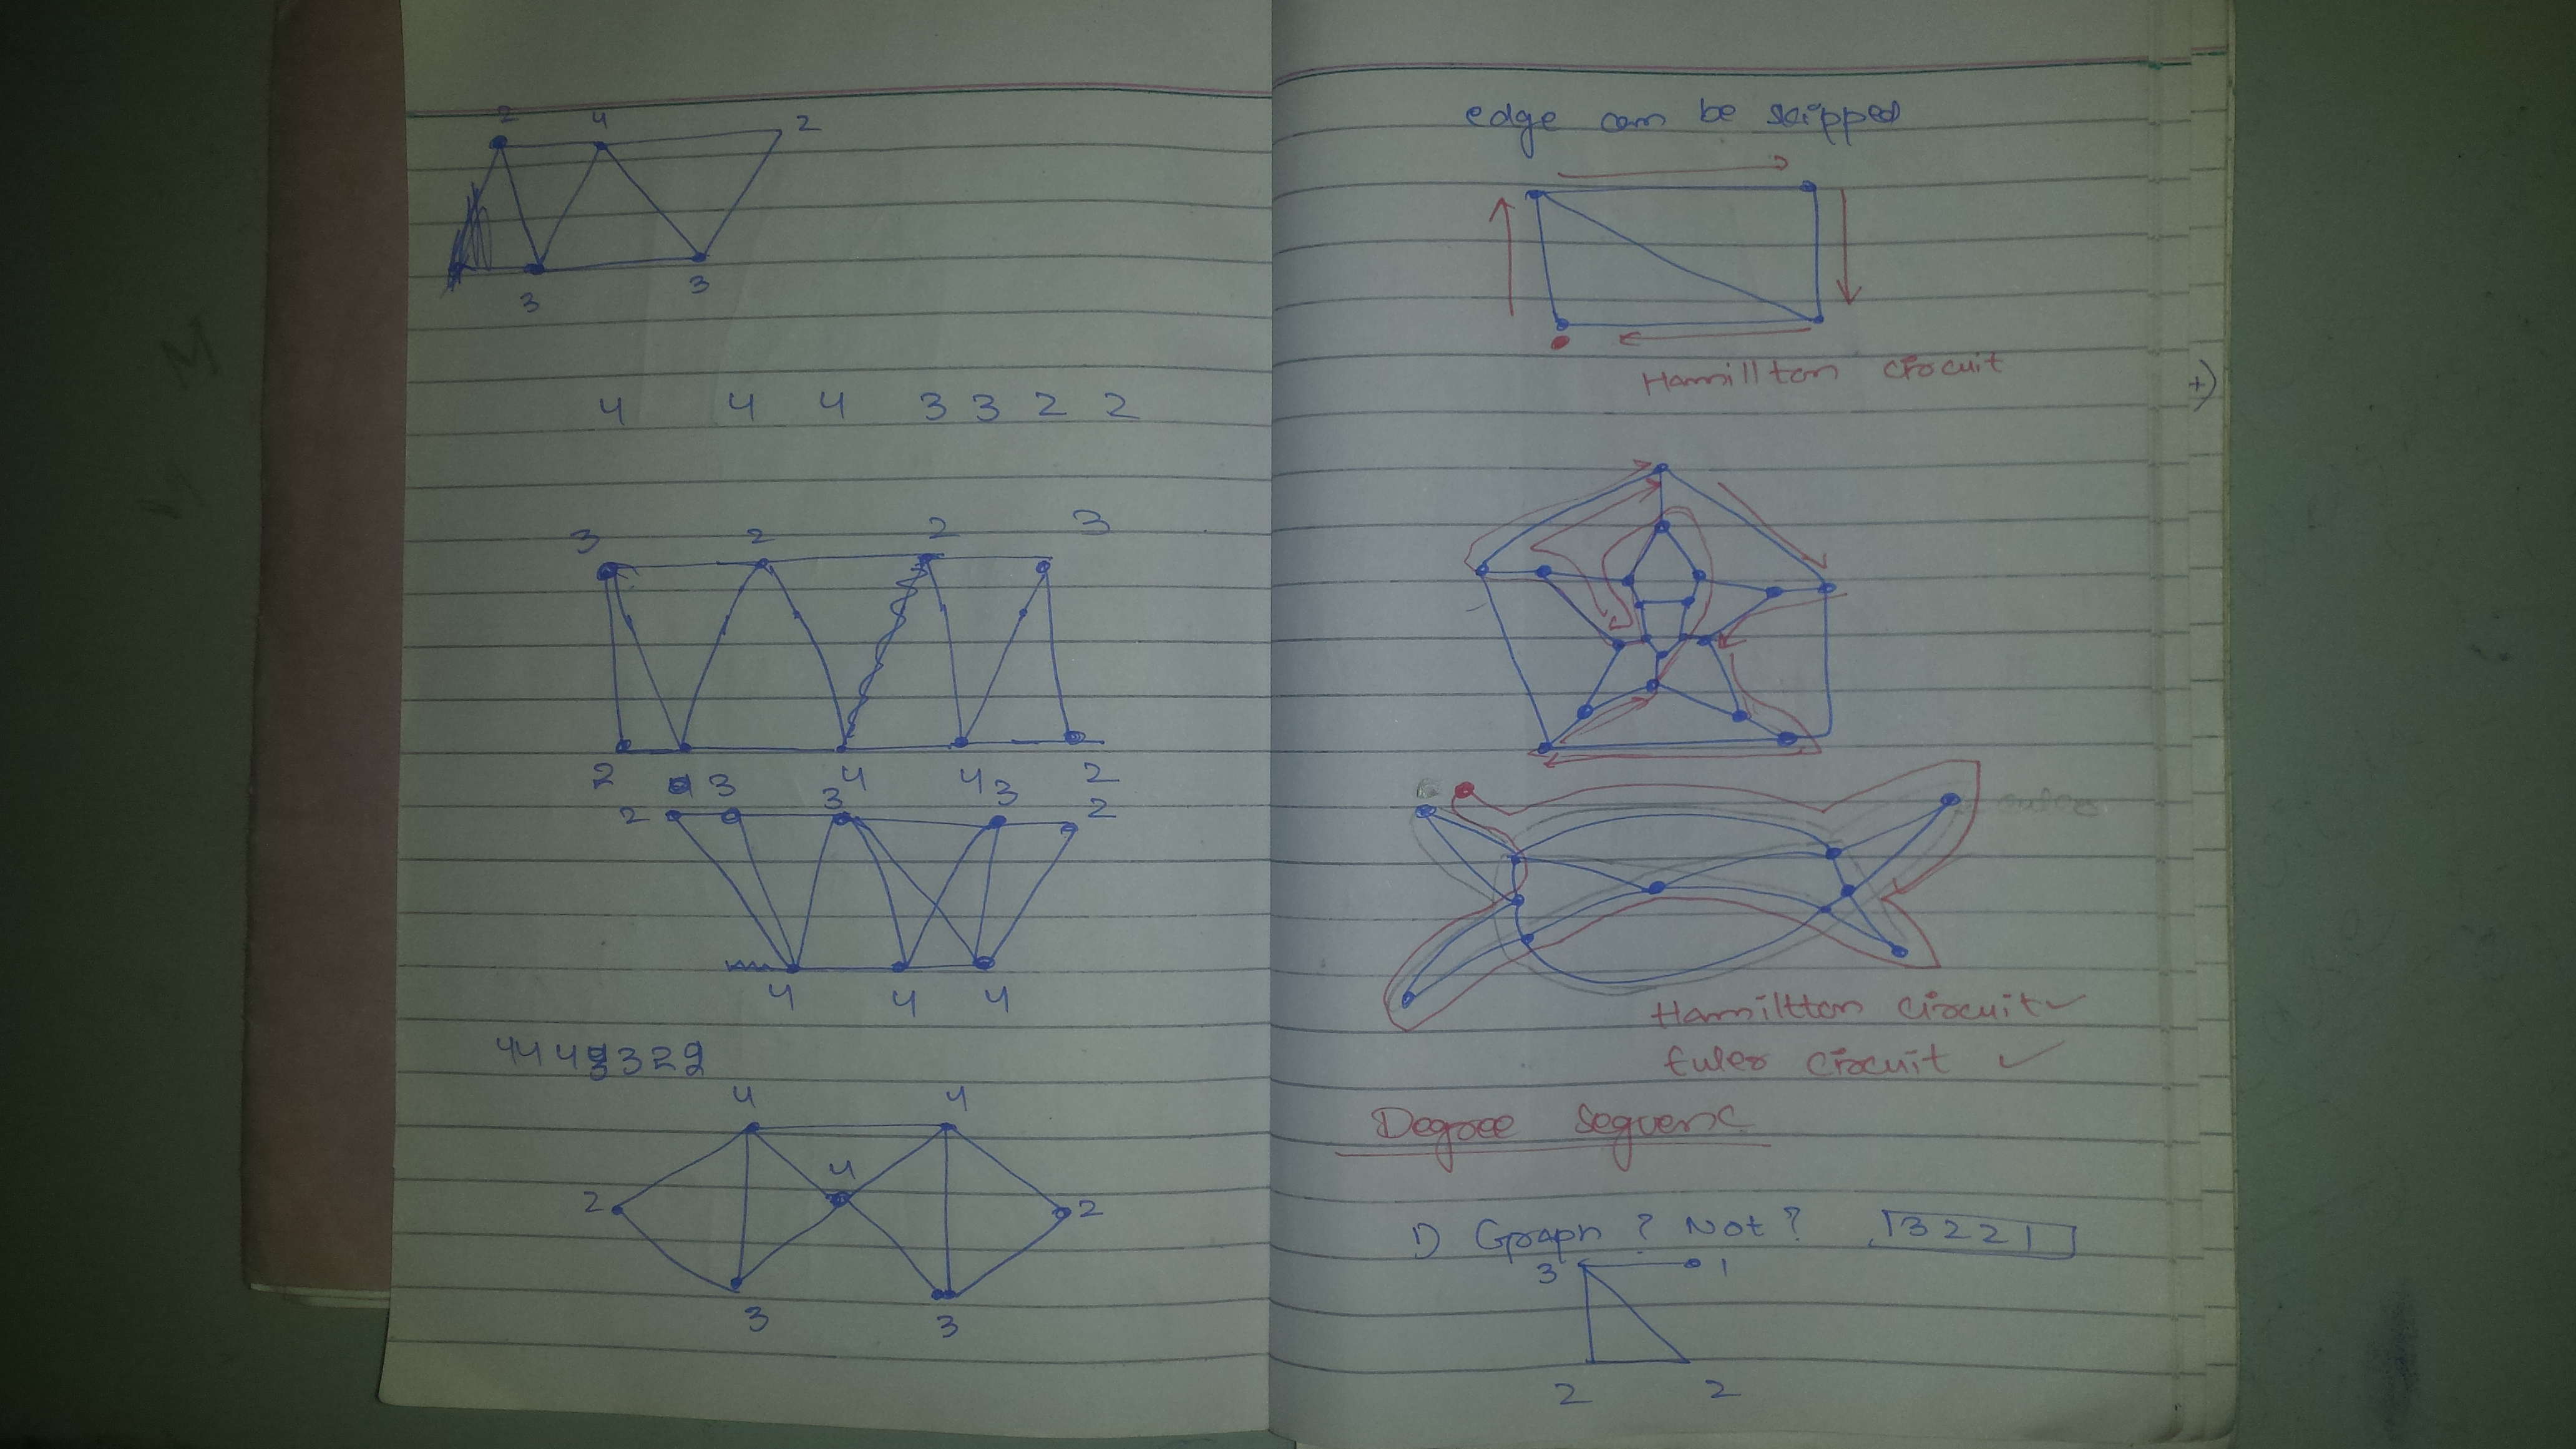 2 4 2
3 3
4 4 4 3 3 2 2
3 2 2 3
2 3 4 4 2
2 3 3 2
4 4 4
4 4 4 3 3 2 2
4 4
2 4 2
3 3
edge can be skipped
Hamillton circuit
Hamiltton circuit ✓
Euler circuit ✓
Degree Sequenc
1) Graph ? Not ? 3 2 2 1
3 1
2 2